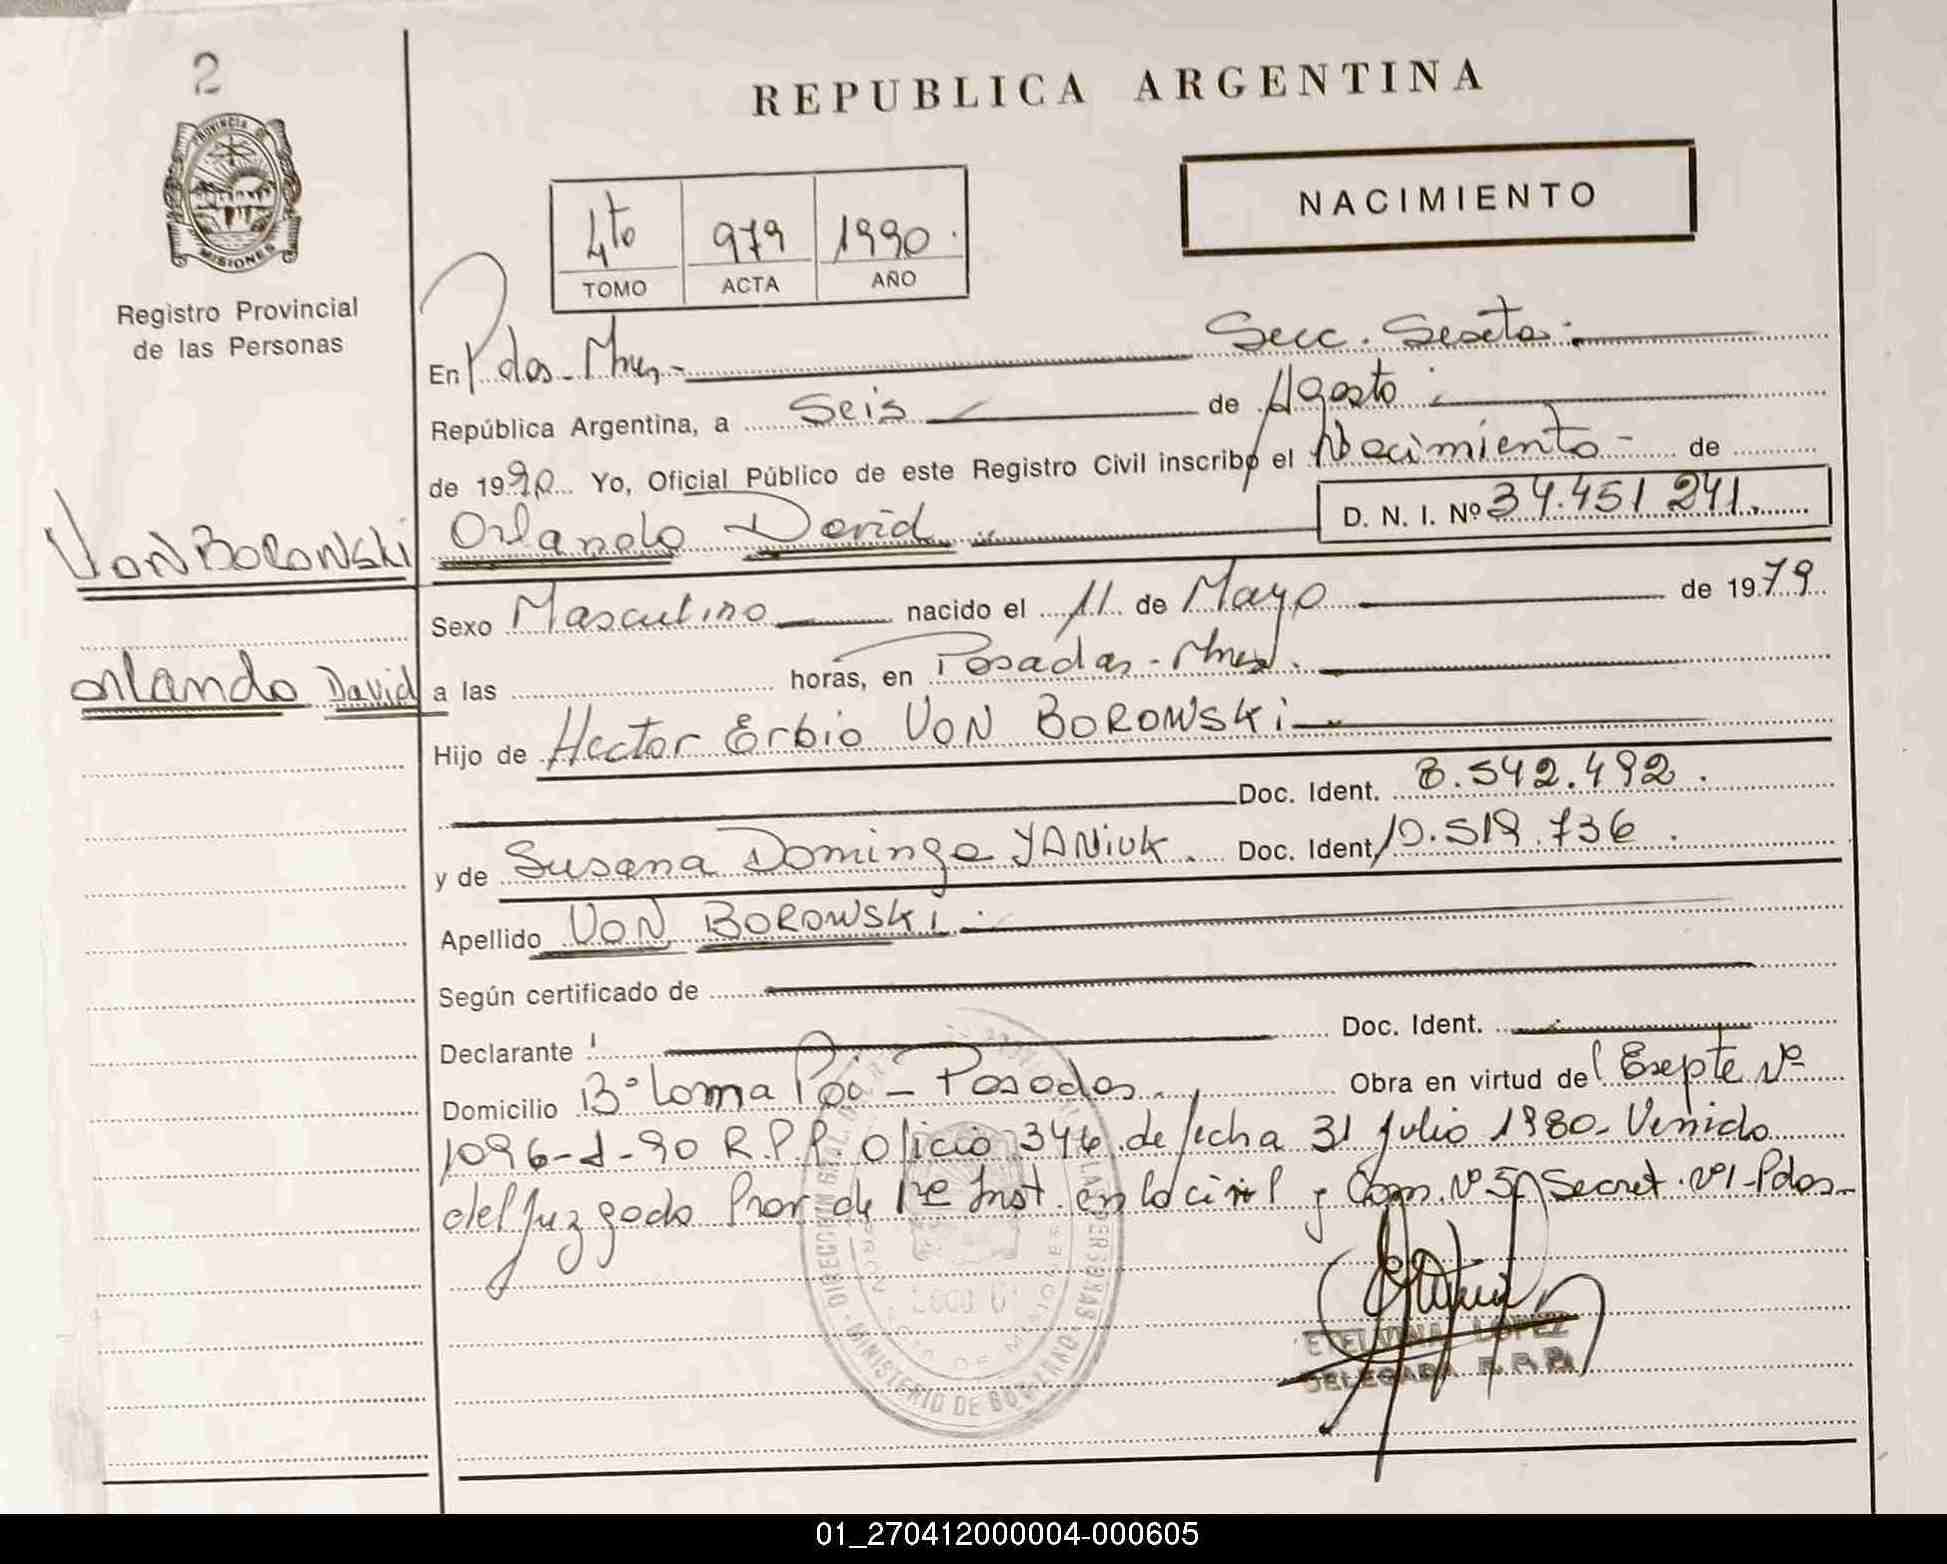 2
REPUBLICA ARGENTINA
NACIMIENTO
PROVINCIA DE
MISIONES
Registro Provincial
de las Personas
4to 979 1990.
TOMO ACTA AÑO
En Pdos-Mnes- Secc. Sexta.
República Argentina, a Seis de Agosto
de 1990 Yo, Oficial Público de este Registro Civil inscribo el Nacimiento - de
Von Borowski Orlando David D. N. I. Nº 34.451 241.
Sexo Masculino nacido el 11 de Mayo de 1979
Orlando David a las horas, en Posadas-Mnes.
Hijo de Hector Erbio VON BOROWSKi
Doc. Ident. 8.542.492.
y de Susana Dominga YANiUK. Doc. Ident. 10.519.736.
Apellido VON BOROWSKi
Según certificado de
Declarante Doc. Ident.
Domicilio Bº Loma Poi - Posadas. Obra en virtud del Expte Nº
1096-J-90 R.P.P. Oficio 344 de fecha 31 julio 1990- Venido
del Juzgado Pror de 1re Inst. en lo civil y Com. Nº 5 Secret. Nº1-Pdos-
DIRECCION GRAL.
LAS PERSONAS
MINISTERIO DE GOBIERNO
PROVINCIA DE MISIONES
ETELVINA LOPEZ
DELEGADA R.P.P.
01_270412000004-000605